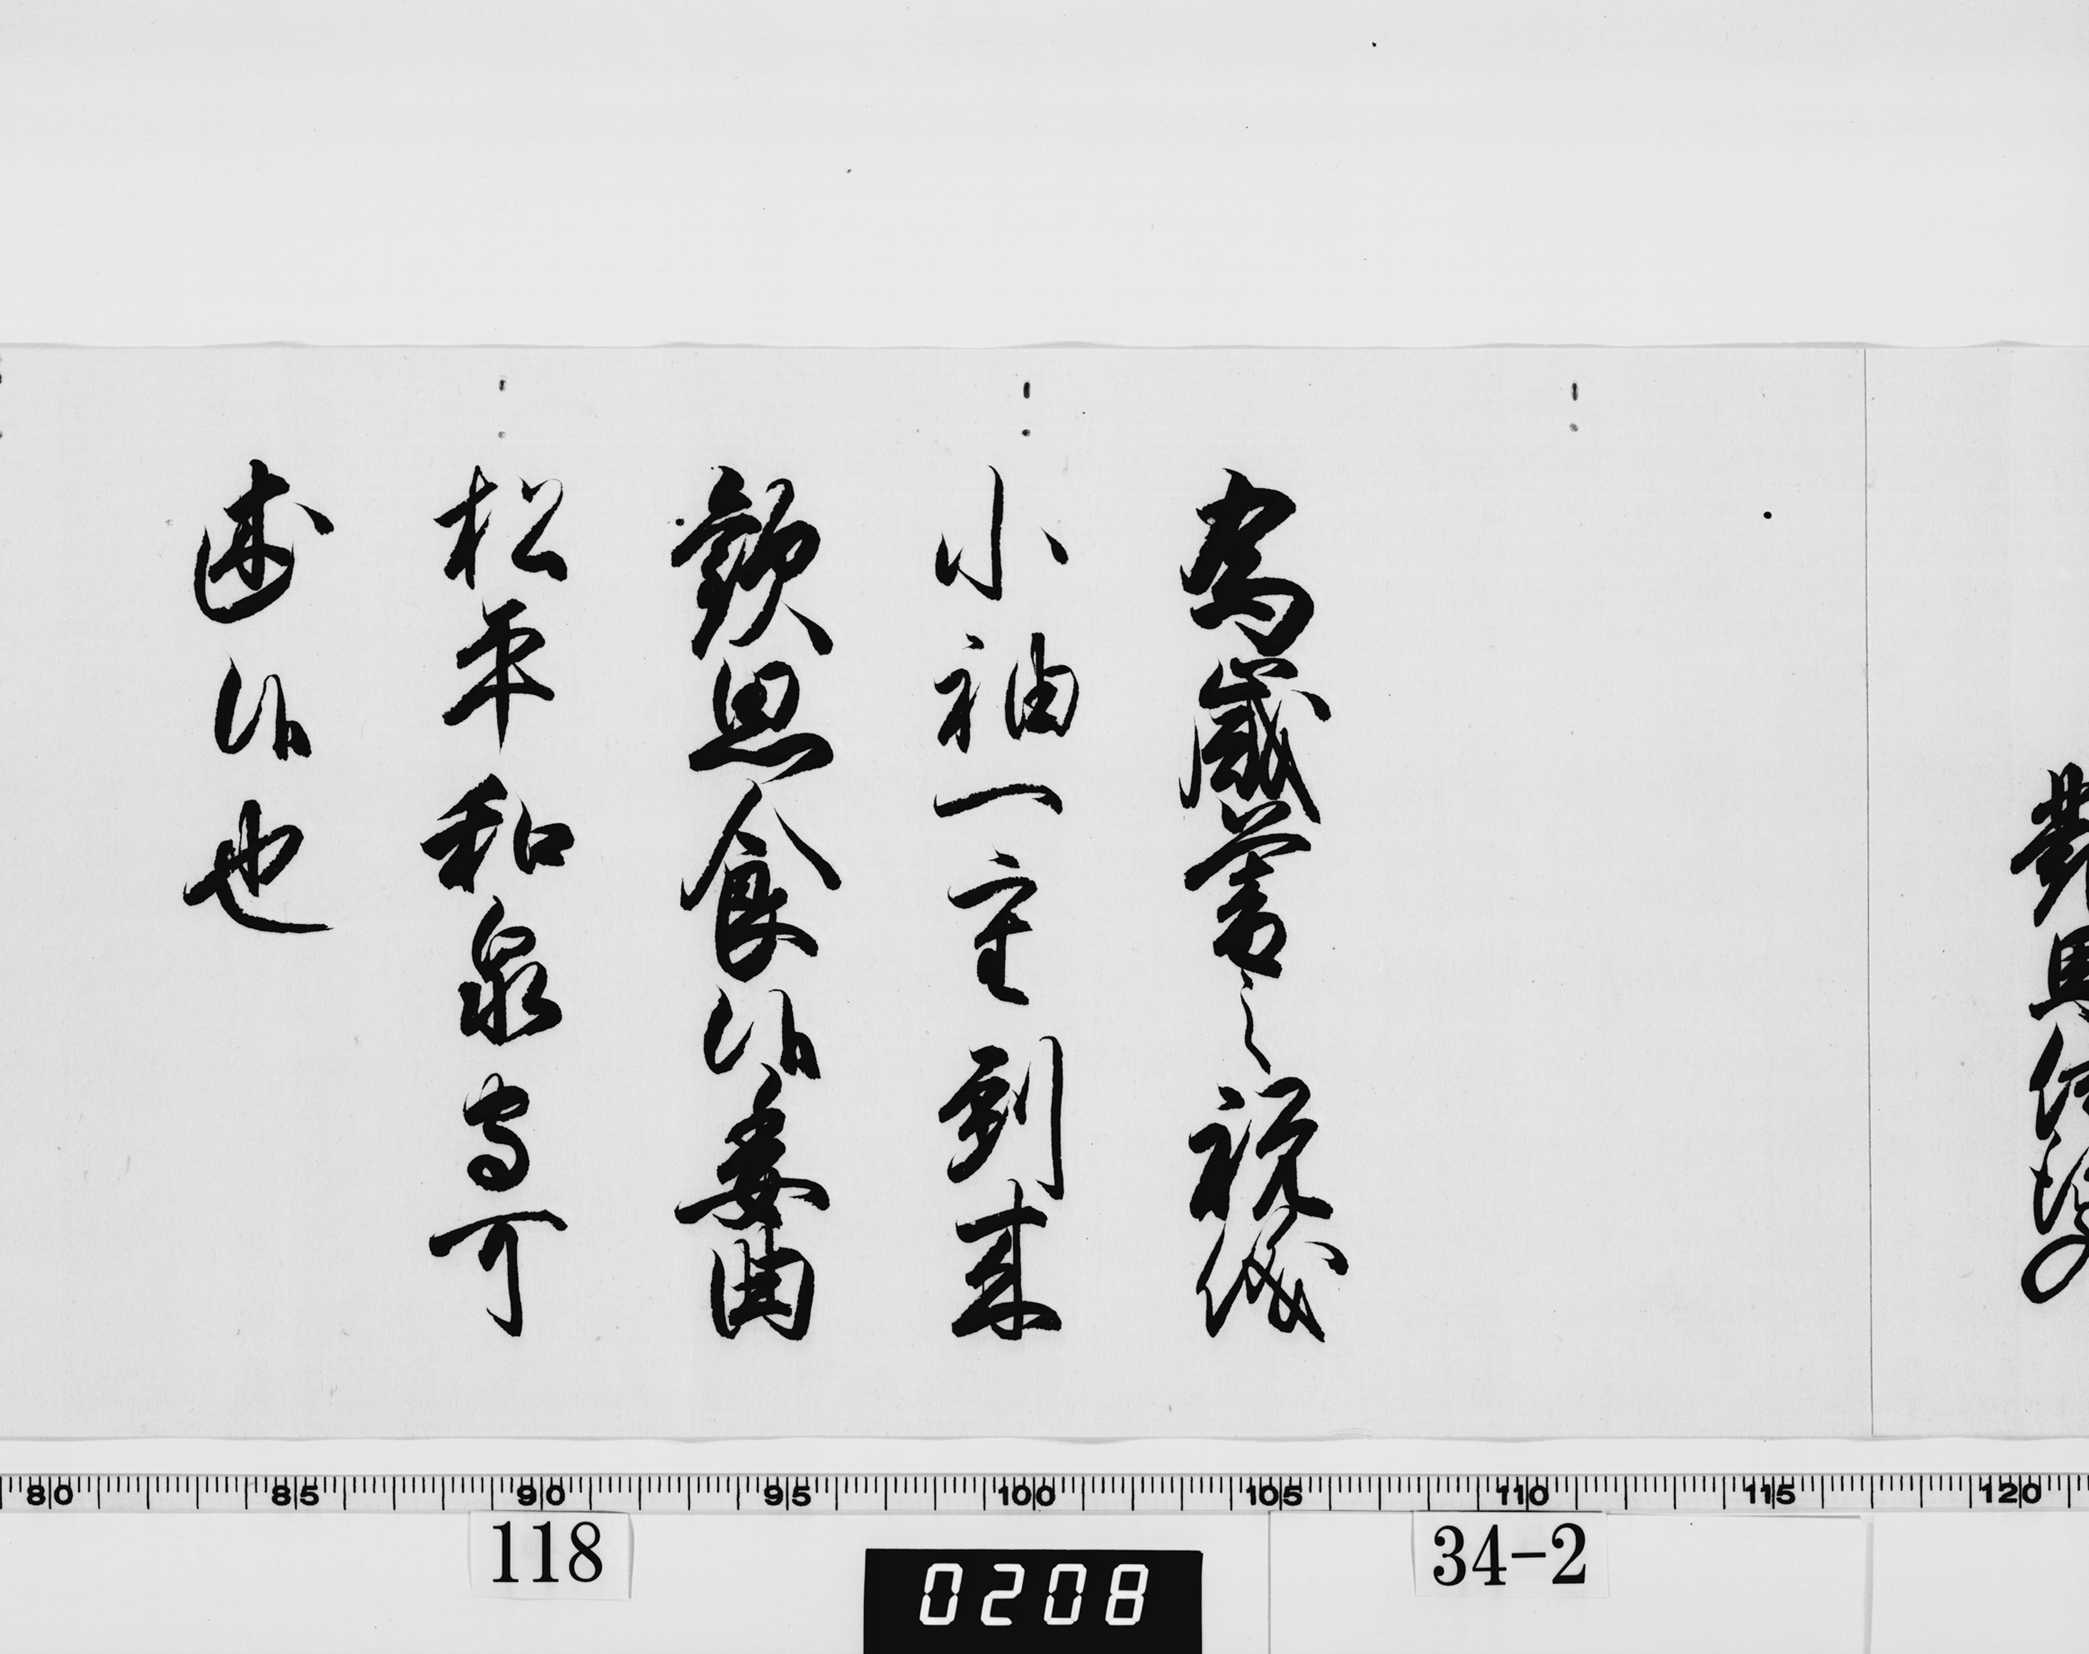 為歳暮之祝儀
小袖一重到来
歓思食候委曲
松平和泉守可
述候也
80 85 90 95 100 105 110 115 120
118
34-2
0208